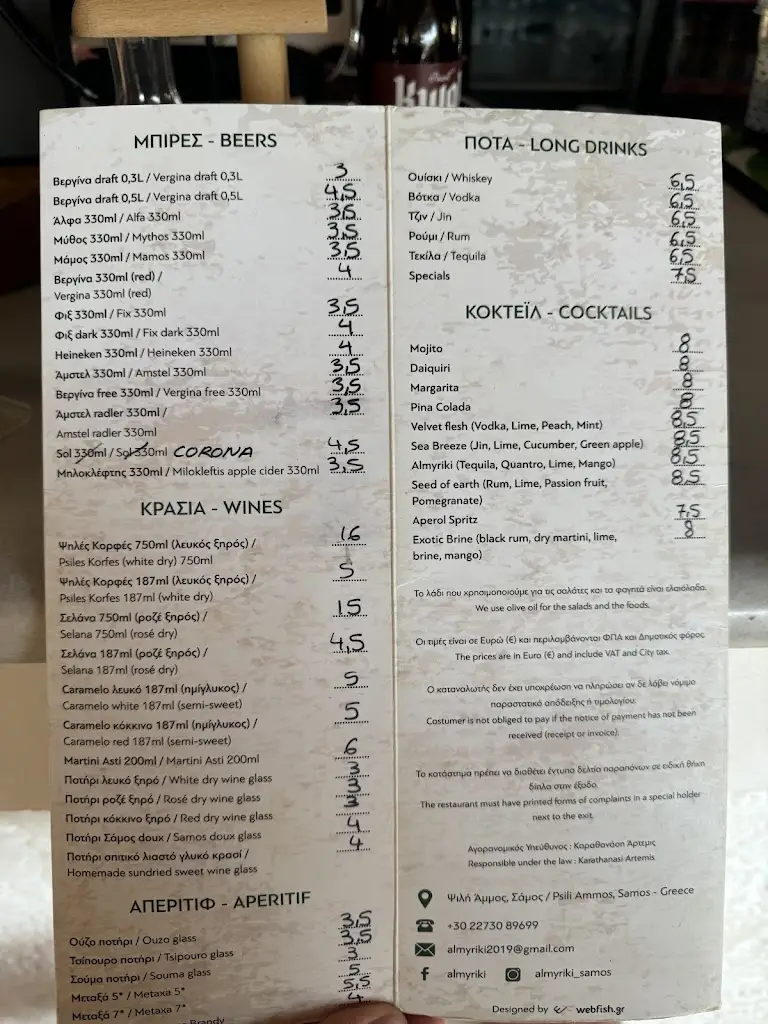 ΜΠΙΡΕΣ - BEERS
Βεργίνα draft 0,3L / Vergina draft 0,3L 3
Βεργίνα draft 0,5L / Vergina draft 0,5L 4,5
Άλφα 330ml / Alfa 330ml 3,5
Μύθος 330ml / Mythos 330ml 3,5
Μάμος 330ml / Mamos 330ml 3,5
Βεργίνα 330ml (red) / 4
Vergina 330ml (red)
Φιξ 330ml / Fix 330ml 3,5
Φιξ dark 330ml / Fix dark 330ml 4
Heineken 330ml / Heineken 330ml 4
Άμστελ 330ml / Amstel 330ml 3,5
Βεργίνα free 330ml / Vergina free 330ml 3,5
Άμστελ radler 330ml / 3,5
Amstel radler 330ml
Sol 330ml / Sol 330ml CORONA 4,5
Μηλοκλέφτης 330ml / Milokleftis apple cider 330ml 3,5
ΚΡΑΣΙΑ - WINES
Ψηλές Κορφές 750ml (λευκός ξηρός) / 16
Psiles Korfes (white dry) 750ml
Ψηλές Κορφές 187ml (λευκός ξηρός) / 5
Psiles Korfes 187ml (white dry)
Σελάνα 750ml (ροζέ ξηρός) / 15
Selana 750ml (rosé dry)
Σελάνα 187ml (ροζέ ξηρός) / 4,5
Selana 187ml (rosé dry)
Caramelo λευκό 187ml (ημίγλυκος) / 5
Caramelo white 187ml (semi-sweet)
Caramelo κόκκινο 187ml (ημίγλυκος) / 5
Caramelo red 187ml (semi-sweet)
Martini Asti 200ml / Martini Asti 200ml 6
Ποτήρι λευκό ξηρό / White dry wine glass 3
Ποτήρι ροζέ ξηρό / Rosé dry wine glass 3
Ποτήρι κόκκινο ξηρό / Red dry wine glass 3
Ποτήρι Σάμος doux / Samos doux glass 4
Ποτήρι σπιτικό λιαστό γλυκό κρασί / 4
Homemade sundried sweet wine glass
ΑΠΕΡΙΤΙΦ - APERITIF
Ούζο ποτήρι / Ouzo glass 3,5
Τσίπουρο ποτήρι / Tsipouro glass 3,5
Σούμα ποτήρι / Souma glass 3
Μεταξά 5* / Metaxa 5* 5
Μεταξά 7* / Metaxa 7* 5,5
Brandy 4
ΠΟΤΑ - LONG DRINKS
Ουίσκι / Whiskey 6,5
Βότκα / Vodka 6,5
Τζιν / Jin 6,5
Ρούμι / Rum 6,5
Τεκίλα / Tequila 6,5
Specials 7,5
ΚΟΚΤΕΪΛ - COCKTAILS
Mojito 8
Daiquiri 8
Margarita 8
Pina Colada 8
Velvet flesh (Vodka, Lime, Peach, Mint) 8,5
Sea Breeze (Jin, Lime, Cucumber, Green apple) 8,5
Almyriki (Tequila, Quantro, Lime, Mango) 8,5
Seed of earth (Rum, Lime, Passion fruit, 8,5
Pomegranate)
Aperol Spritz 7,5
Exotic Brine (black rum, dry martini, lime, 8
brine, mango)
Το λάδι που χρησιμοποιούμε για τις σαλάτες και τα φαγητά είναι ελαιόλαδο.
We use olive oil for the salads and the foods.
Οι τιμές είναι σε Ευρώ (€) και περιλαμβάνονται ΦΠΑ και Δημοτικός φόρος.
The prices are in Euro (€) and include VAT and City tax.
Ο καταναλωτής δεν έχει υποχρέωση να πληρώσει αν δε λάβει νόμιμο
παραστατικό απόδειξης ή τιμολογίου.
Costumer is not obliged to pay if the notice of payment has not been
received (receipt or invoice).
Το κατάστημα πρέπει να διαθέτει έντυπα δελτία παραπόνων σε ειδική θήκη
δίπλα στην έξοδο.
The restaurant must have printed forms of complaints in a special holder
next to the exit.
Αγορανομικός Υπεύθυνος : Καραθανάση Άρτεμις
Responsible under the law : Karathanasi Artemis
Ψιλή Άμμος, Σάμος / Psili Ammos, Samos - Greece
+30 22730 89699
almyriki2019@gmail.com
almyriki almyriki_samos
Designed by webfish.gr